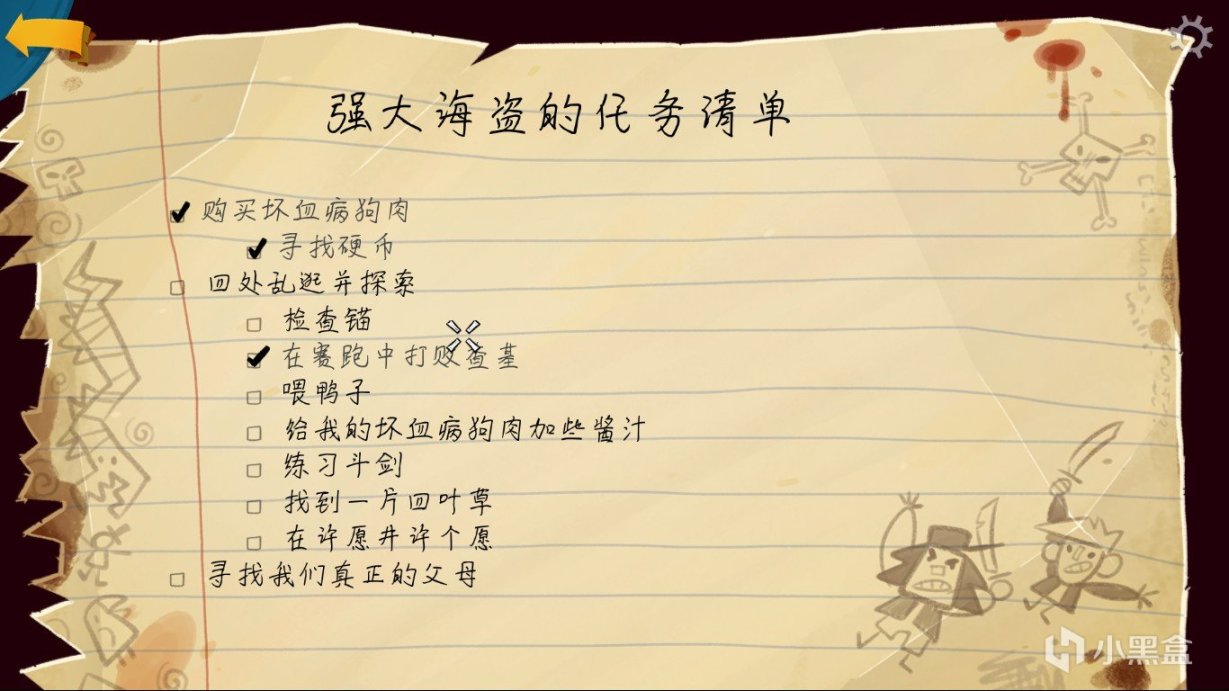 强大海盗的任务清单
购买坏血病狗肉
寻找硬币
四处乱逛并探索
检查锚
在赛跑中打败查基
喂鸭子
给我的坏血病狗肉加些酱汁
练习斗剑
找到一片四叶草
在许愿井许个愿
寻找我们真正的父母
小黑盒